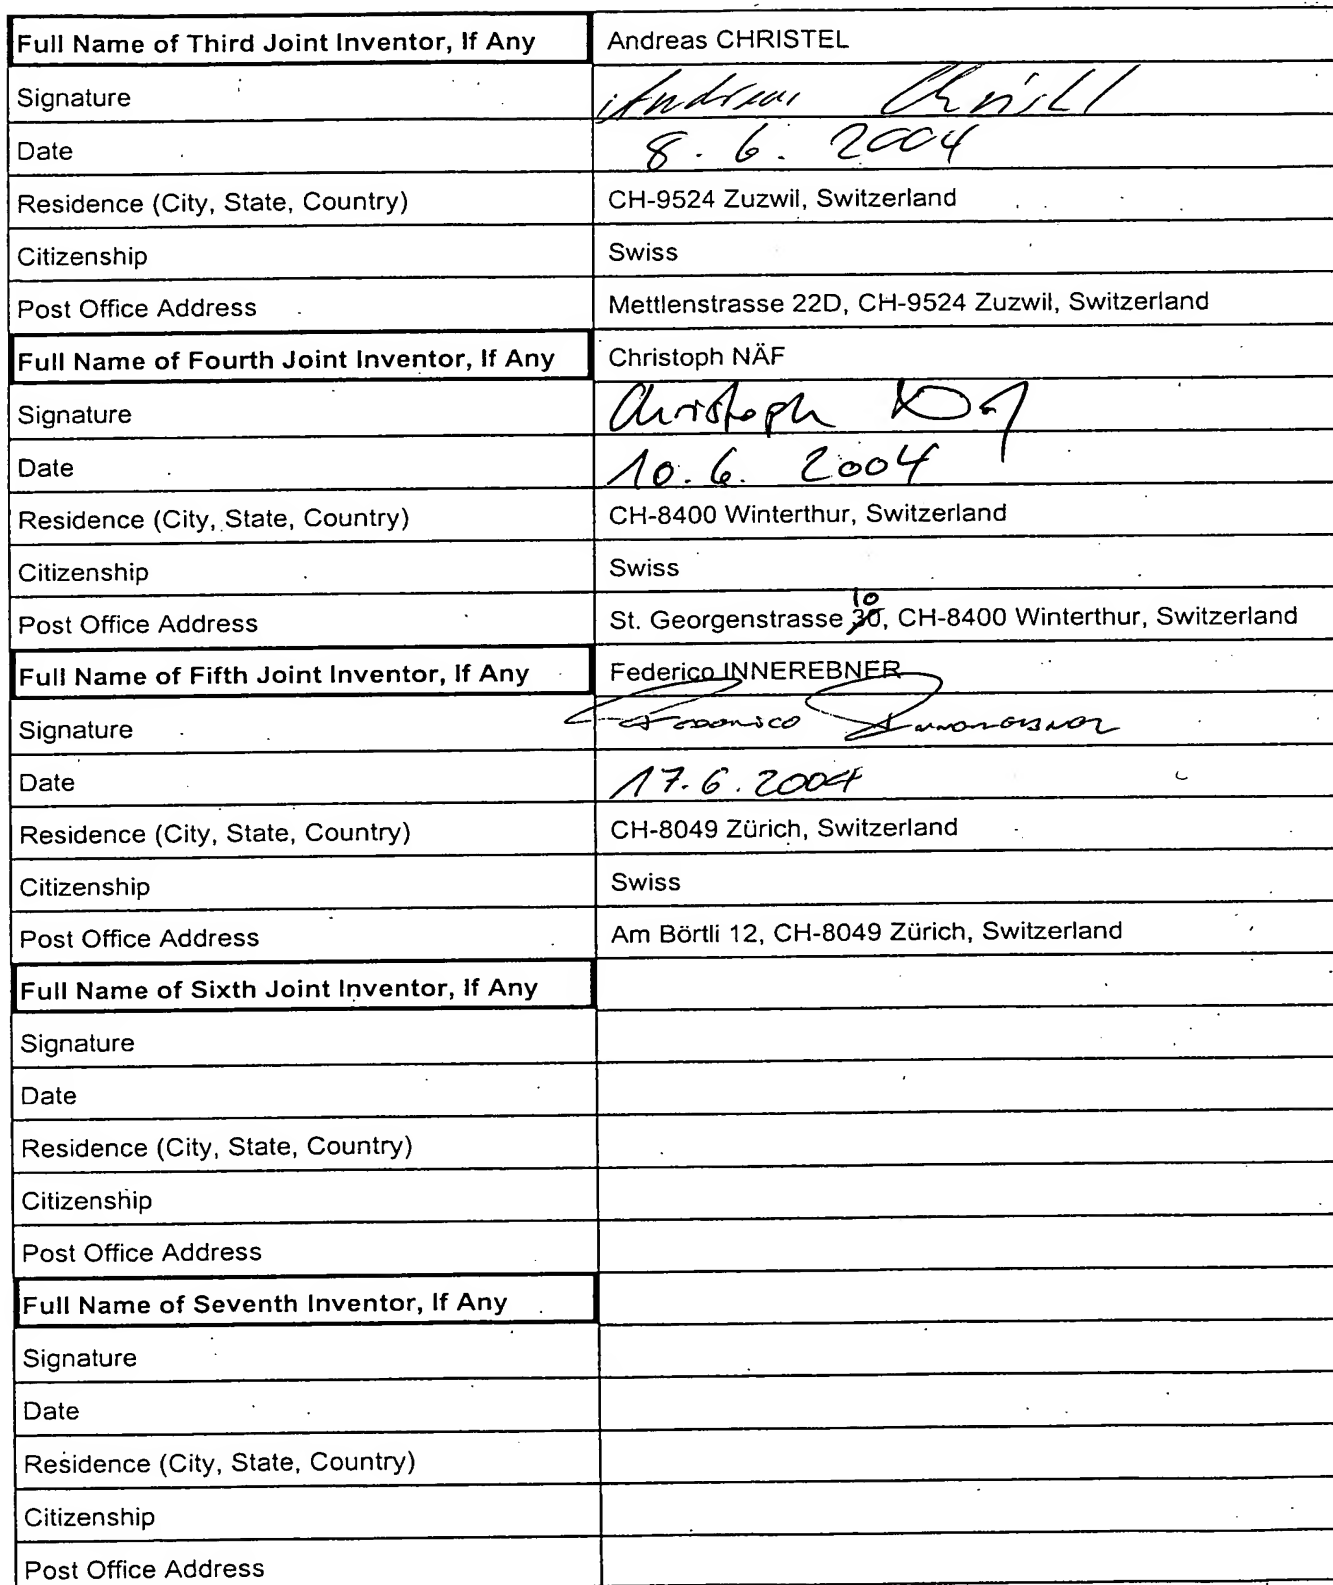 Full Name of Third Joint Inventor, If Any Andreas CHRISTEL
Signature Andreas Christel
Date 8. 6. 2004
Residence (City, State, Country) CH-9524 Zuzwil, Switzerland
Citizenship Swiss
Post Office Address Mettlenstrasse 22D, CH-9524 Zuzwil, Switzerland
Full Name of Fourth Joint Inventor, If Any Christoph NÄF
Signature Christoph Näf
Date 10. 6. 2004
Residence (City, State, Country) CH-8400 Winterthur, Switzerland
Citizenship Swiss
10
Post Office Address St. Georgenstrasse 30, CH-8400 Winterthur, Switzerland
Full Name of Fifth Joint Inventor, If Any Federico INNEREBNER
Signature Federico Innerebner
Date 17. 6. 2004
Residence (City, State, Country) CH-8049 Zürich, Switzerland
Citizenship Swiss
Post Office Address Am Börtli 12, CH-8049 Zürich, Switzerland
Full Name of Sixth Joint Inventor, If Any
Signature
Date
Residence (City, State, Country)
Citizenship
Post Office Address
Full Name of Seventh Inventor, If Any
Signature
Date
Residence (City, State, Country)
Citizenship
Post Office Address